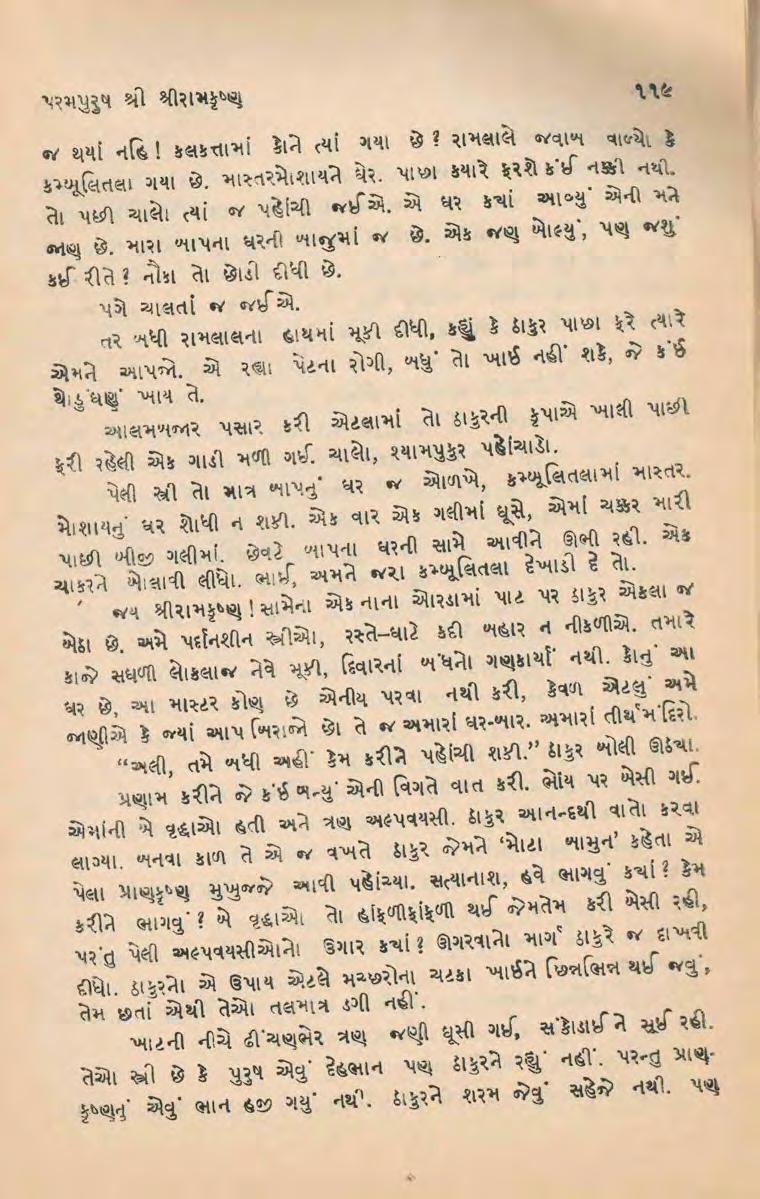 પરમપુરુષ શ્રી શ્રીરામકૃષ્ણ ૧૧૯
જ થયાં નહિ! કલકત્તામાં કોને ત્યાં ગયા છે? રામલાલે જવાબ વાળ્યો કે
કમ્બૂલિતલા ગયા છે. માસ્તરમોશાયને ઘેર. પાછા કયારે ફરશે કંઈ નક્કી નથી.
તો પછી ચાલો ત્યાં જ પહોંચી જઈએ. એ ઘર કયાં આવ્યું એની મને
જાણ છે. મારા બાપના ઘરની બાજુમાં જ છે. એક જણ બોલ્યું, પણ જશું
કઈ રીતે? નૌકા તો છોડી દીધી છે.
પગે ચાલતાં જ જઈએ.
તર બધી રામલાલના હાથમાં મૂકી દીધી, કહ્યું કે ઠાકુર પાછા ફરે ત્યારે
એમને આપજો. એ રહ્યા પેટના રોગી, બધું તો ખાઈ નહીં શકે, જે કંઈ
થોડુંઘણું ખાય તે.
આલમબજાર પસાર કરી એટલામાં તો ઠાકુરની કૃપાએ ખાલી પાછી
ફરી રહેલી એક ગાડી મળી ગઈ. ચાલો, શ્યામપુકુર પહોંચાડો.
પેલી સ્ત્રી તો માત્ર બાપનું ઘર જ ઓળખે, કમ્બૂલિતલામાં માસ્તર.
મોશાયનું ઘર શોધી ન શકી. એક વાર એક ગલીમાં ઘૂસે, એમાં ચક્કર મારી
પાછી બીજી ગલીમાં. છેવટે બાપના ઘરની સામે આવીને ઊભી રહી. એક
ચાકરને બોલાવી લીધો. ભાઈ, અમને જરા કમ્બૂલિતલા દેખાડી દે તો.
જય શ્રીરામકૃષ્ણ! સામેના એક નાના ઓરડામાં પાટ પર ઠાકુર એકલા જ
બેઠા છે. અમે પર્દાનશીન સ્ત્રીઓ, રસ્તે-ઘાટે કદી બહાર ન નીકળીએ. તમારે
કાજે સઘળી લોકલાજ નેવે મૂકી, દિવારનાં બંધનો ગણકાર્યાં નથી. કોનું આ
ઘર છે, આ માસ્ટર કોણ છે એનીય પરવા નથી કરી, કેવળ એટલું અમે
જાણીએ કે જ્યાં આપ બિરાજો છો તે જ અમારાં ઘર-બાર. અમારાં તીર્થમંદિરો.
“અલી, તમે બધી અહીં કેમ કરીને પહોંચી શકી.” ઠાકુર બોલી ઊઠયા.
પ્રણામ કરીને જે કંઈ બન્યું એની વિગતે વાત કરી. ભોંય પર બેસી ગઈ.
એમાંની બે વૃદ્ધાઓ હતી અને ત્રણ અલ્પવયસી. ઠાકુર આનન્દથી વાતો કરવા
લાગ્યા. બનવા કાળ તે એ જ વખતે ઠાકુર જેમને ‘મોટા બામુન’ કહેતા એ
પેલા પ્રાણકૃષ્ણ મુખુજજે આવી પહોંચ્યા. સત્યાનાશ, હવે ભાગવું કયાં? કેમ
કરીને ભાગવું? બે વૃદ્ધાઓ તો હાંફળીફાંફળી થઈ જેમતેમ કરી બેસી રહી,
પરંતુ પેલી અલ્પવયસીઓનો ઉગાર કયાં? ઊગરવાનો માર્ગ ઠાકુરે જ દાખવી
દીધો. ઠાકુરનો એ ઉપાય એટલે મચ્છરોના ચટકા ખાઈને છિન્નભિન્ન થઈ જવું,
તેમ છતાં એથી તેઓ તલમાત્ર ડગી નહીં.
ખાટની નીચે ઢીંચણભેર ત્રણ જણી ઘૂસી ગઈ, સંકોડાઈને સૂઈ રહી.
તેઓ સ્ત્રી છે કે પુરુષ એવું દેહભાન પણ ઠાકુરને રહ્યું નહીં. પરન્તુ પ્રાણ-
કૃષ્ણનું એવું ભાન હજી ગયું નથી. ઠાકુરને શરમ જેવું સહેજે નથી. પણ